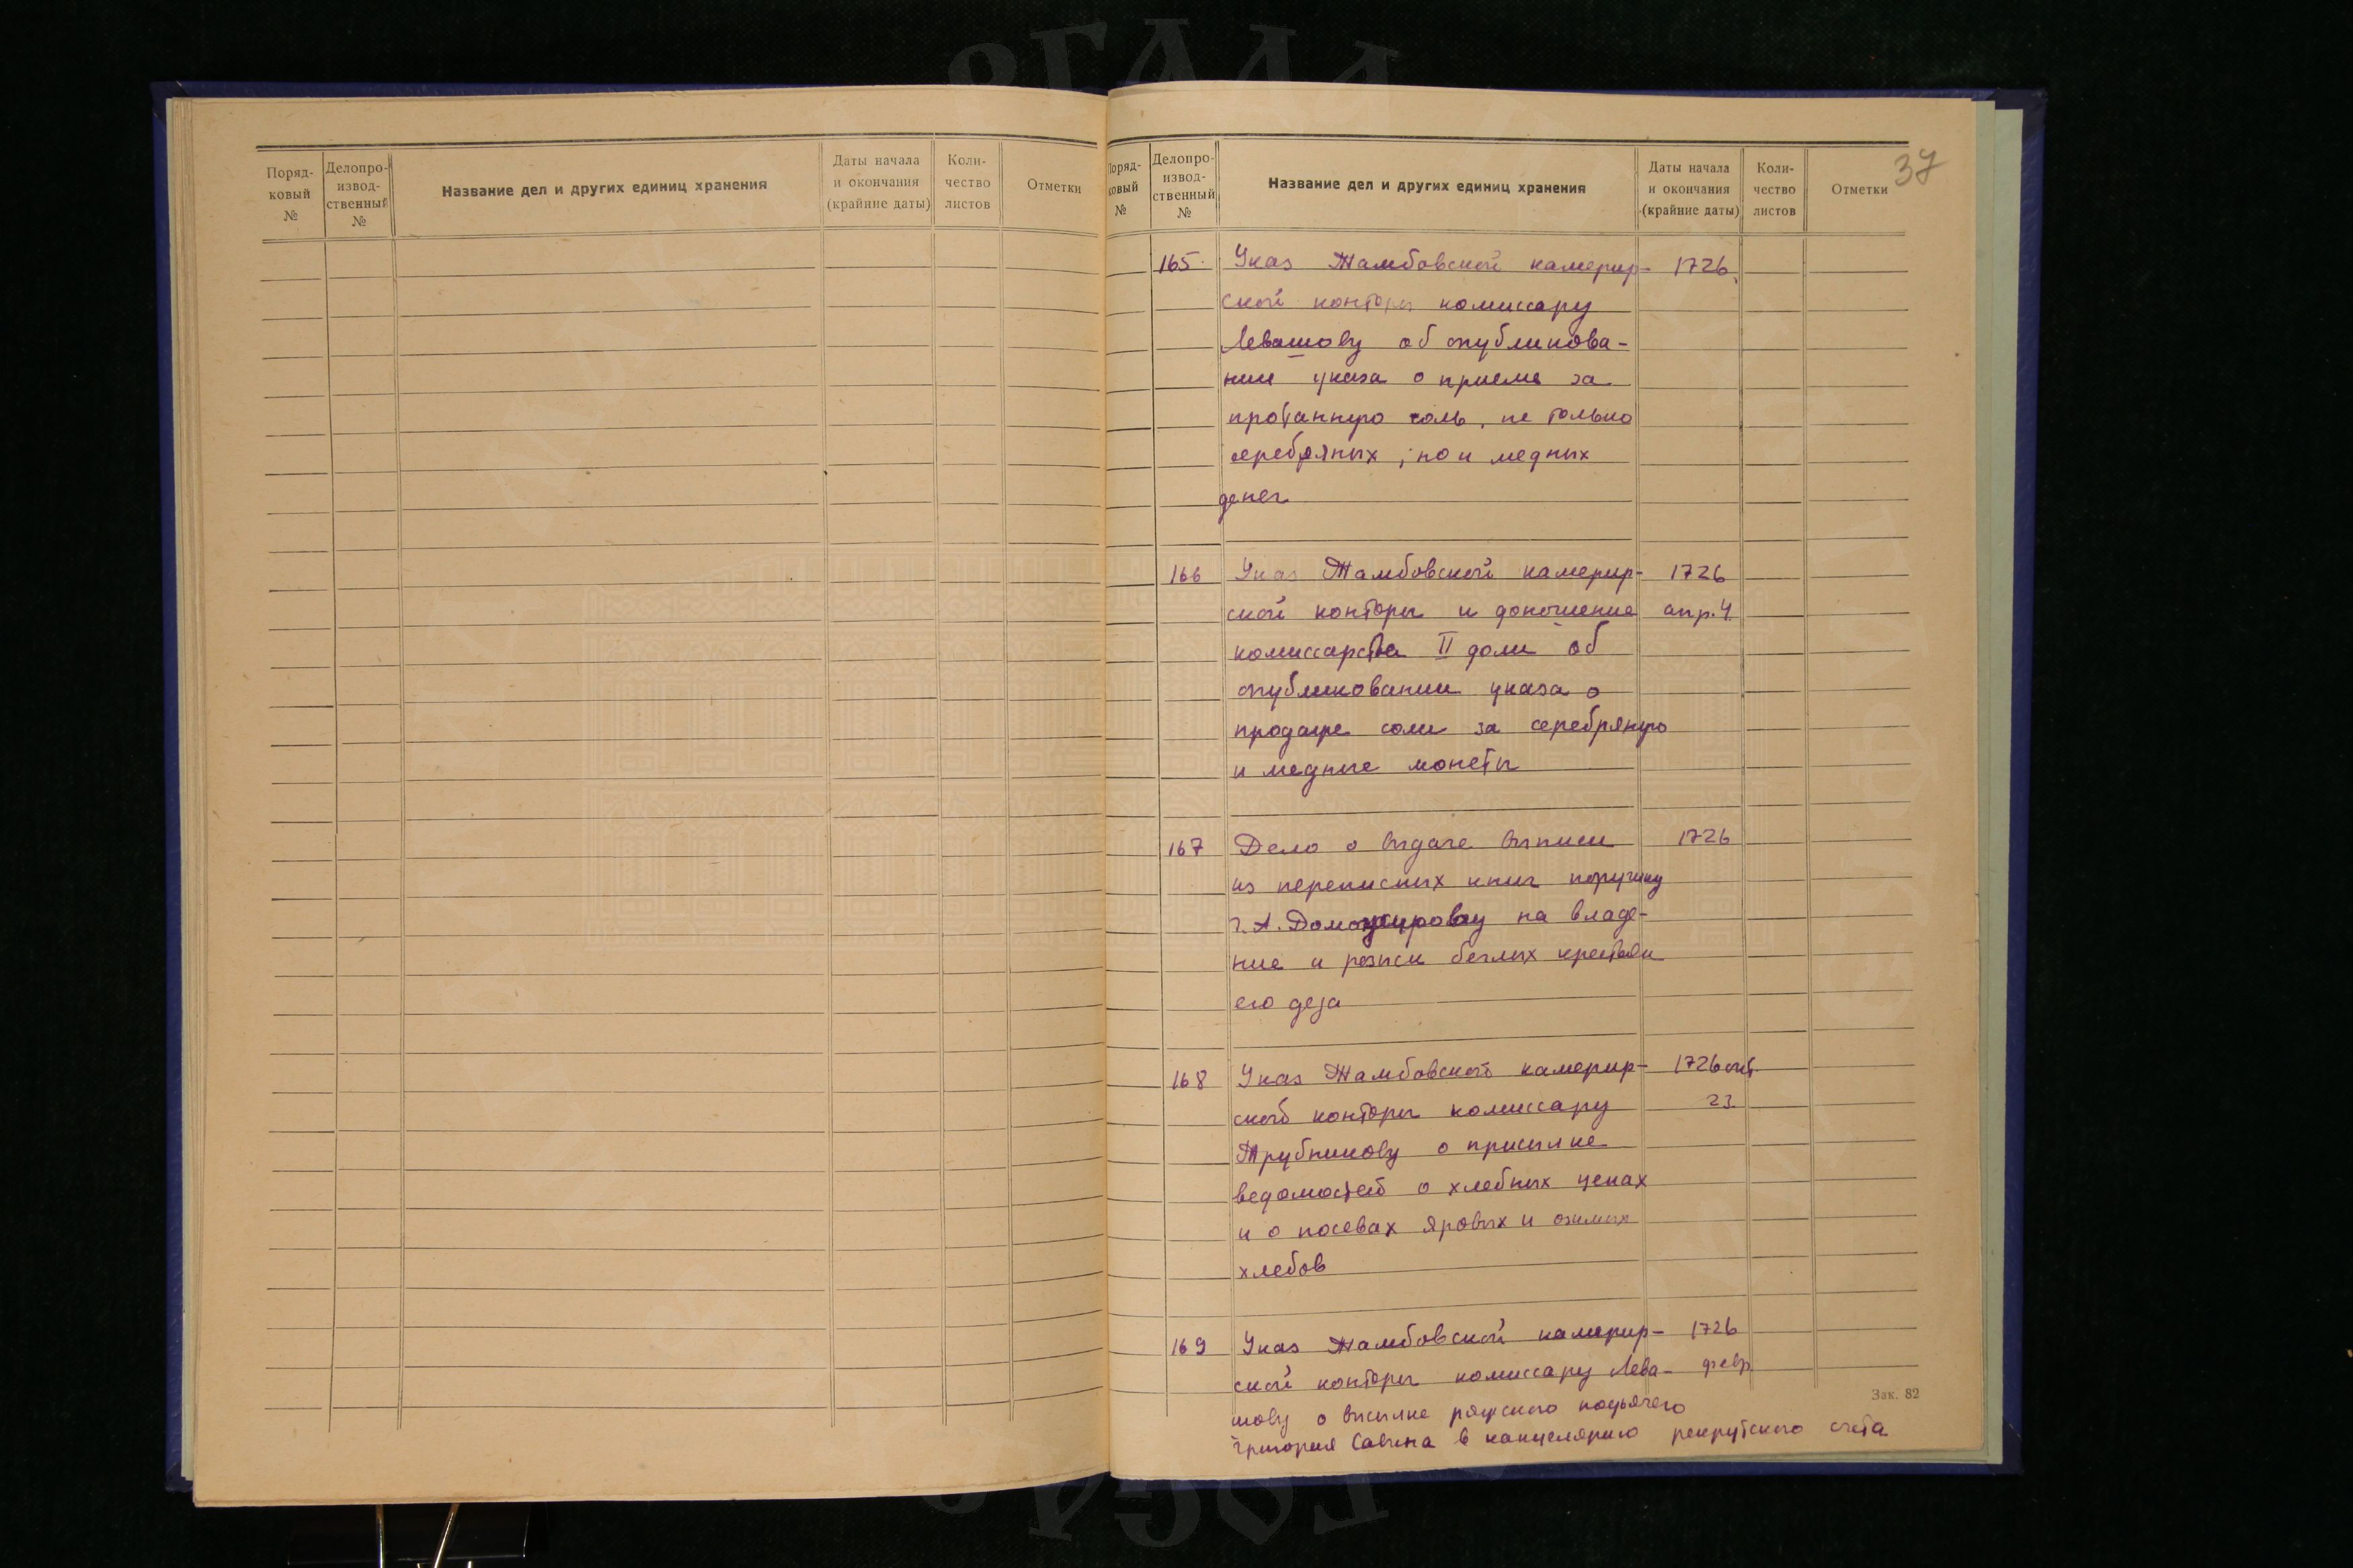 Поряд-
ковый
№
Делопро-
извод-
ственный
№
Название дел и других единиц хранения
Даты начала
и окончания
(крайние даты)
Коли-
чество
листов
Отметки
Поряд-
ковый
№
Делопро-
извод-
ственный
№
Название дел и других единиц хранения
Даты начала
и окончания
(крайние даты)
Коли-
чество
листов
Отметки
37
165 Указ Тамбовской камерир- 1726
ской конторы комиссару
Левашову об опубликова-
нии указа о приеме за
проданную соль, не только
серебряных, но и медных
денег
166 Указ Тамбовской камерир- 1726
ской конторы и доношение апр. 4
комиссарства II доли об
опубликовании указа о
продаже соли за серебряную
и медные монеты
167 Дело о выдаче выписи 1726
из переписных книг поручику
Г. А. на владе-
ние и беглых крестьян
его деда
168 Указ Тамбовской камерир- 1726 окт.
ской конторы комиссару 23
Трубникову о присылке
ведомостей о хлебных ценах
и о посевах яровых и озимых
хлебов
169 Указ Тамбовской камерир- 1726
ской конторы комиссару Лева- февр.
шову о высылке ряжского подьячего
Григория Савина в канцелярию рекрутского счета
Зак. 82